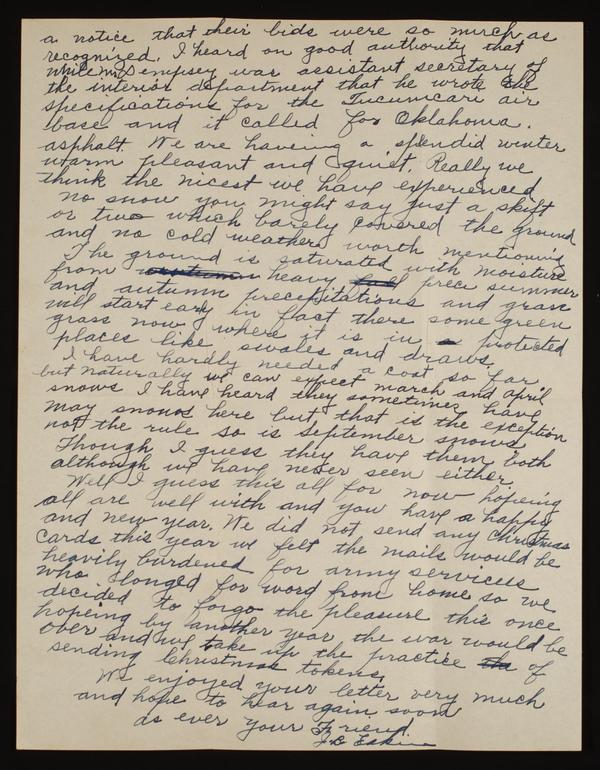 a notice that their bids were so much as
recognized. I heard on good authority that
while Mr Dempsey was assistant secretary of
the interior department that he wrote the
specifications for the Tucumcari air
base and it called for Oklahoma.
asphalt. We are having a splendid winter
warm pleasant and quiet. Really we
think the nicest we have experienced
no snow you might say just a skift
or two which barely covered the ground
and no cold weather worth mentioning
The ground is saturated with moisture
from heavy prece summer
and autumn precepitations and grass
will start early in fact there some green
grass now where it is in a protected
places like swales and draws.
I have hardly needed a coat so far
but naturally we can expect march and april
snows I have heard they sometimes have
may snows here but that is the exception
not the rule so is September snows
Though I guess they have them both
although we have never seen either.
Well I guess this all for now hopeing
all are well with and you have a happy
and new year. We did not send any Christmas
cards this year we felt the mails would be
heavily burdened for army services
who longed for word from home so we
decided to forgo the pleasure this once
hopeing by another year the war would be
over and we take up the practice of
sending Christmas tokens.
We enjoyed your letter very much
and hope to hear again soon
as ever your Friend